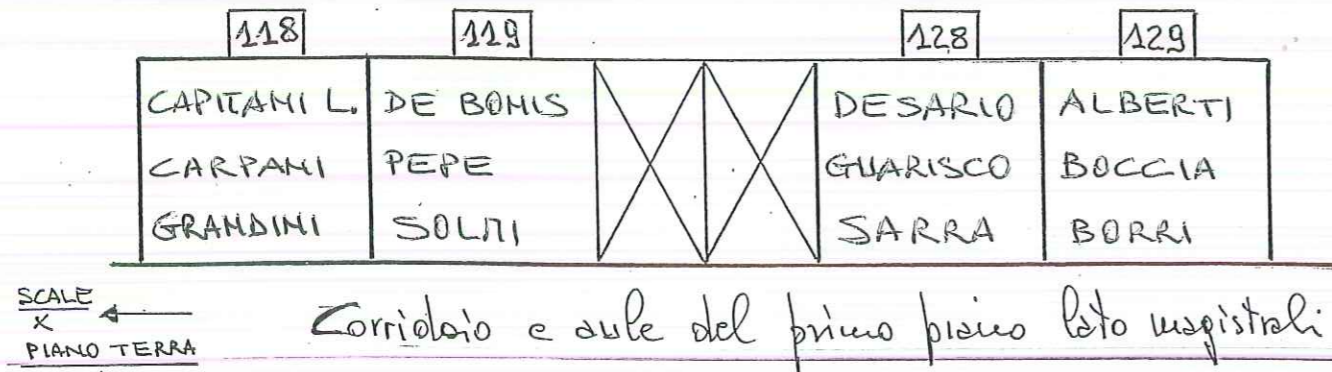 118 119 128 129
CAPITANI L. DE BONIS DESARIO ALBERTI
CARPANI PEPE GUARISCO BOCCIA
GRANDINI SOLMI SARRA BORRI
SCALE
X
PIANO TERRA
Corridoio e aule del primo piano lato magistrali